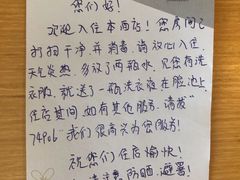 您们好！
欢迎入住本酒店！您房间已
打扫干净并消毒，请放心入住，
天气炎热，多放了两瓶水，见您有洗
衣服，就送了一瓶洗衣液在脸池上，
住店其间如有其他服务，请拨"
7490b"我们很高兴为您服务！
祝您们住店愉快！
注意防晒，避暑！